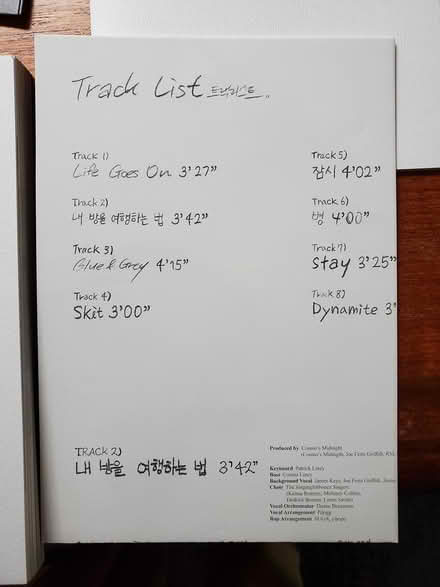 Track List 트랙리스트..
Track 1)
Life Goes On 3'27"
Track 2)
내 방을 여행하는 법 3'42"
Track 3)
Blue & Grey 4'15"
Track 4)
Skit 3'00"
Track 5)
잠시 4'02"
Track 6)
병 4'00"
Track 7)
Stay 3'25"
Track 8)
Dynamite 3'
TRACK 2)
내 방을 여행하는 법 3'42"
Produced by Cosmo's Midnight
(Cosmo's Midnight, Joe Femi Griffith, RM,
Keyboard Patrick Liney
Bass Cosmo Liney
Background Vocal James Keys, Joe Femi Griffith,
Choir The Singing
Vocal Arrangement Pdogg
Rap Arrangement